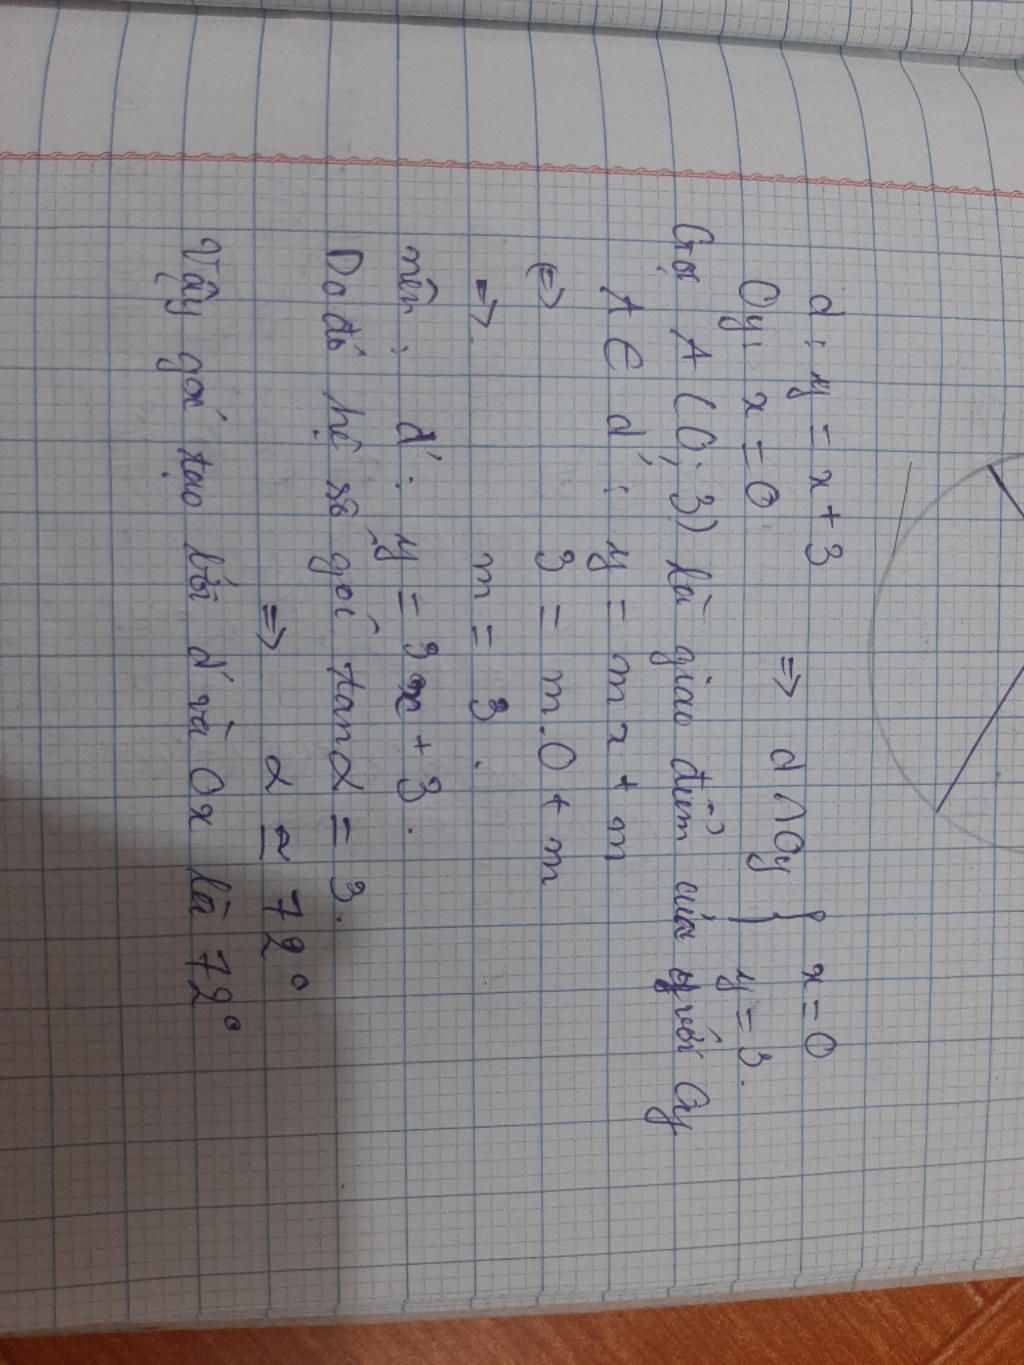 d : y = x + 3
Oy: x = 0 => d ∩ Oy { x = 0
y = 3.
Gọi A (0; 3) là giao điểm của y với Oy
A ∈ d' : y = mx + m
<=> 3 = m.0 + m
=> m = 3.
nên : d' : y = 3x + 3.
Do đó hệ số góc tanα = 3.
=> α ≃ 72°
Vậy góc tạo bởi d' và Ox là 72°